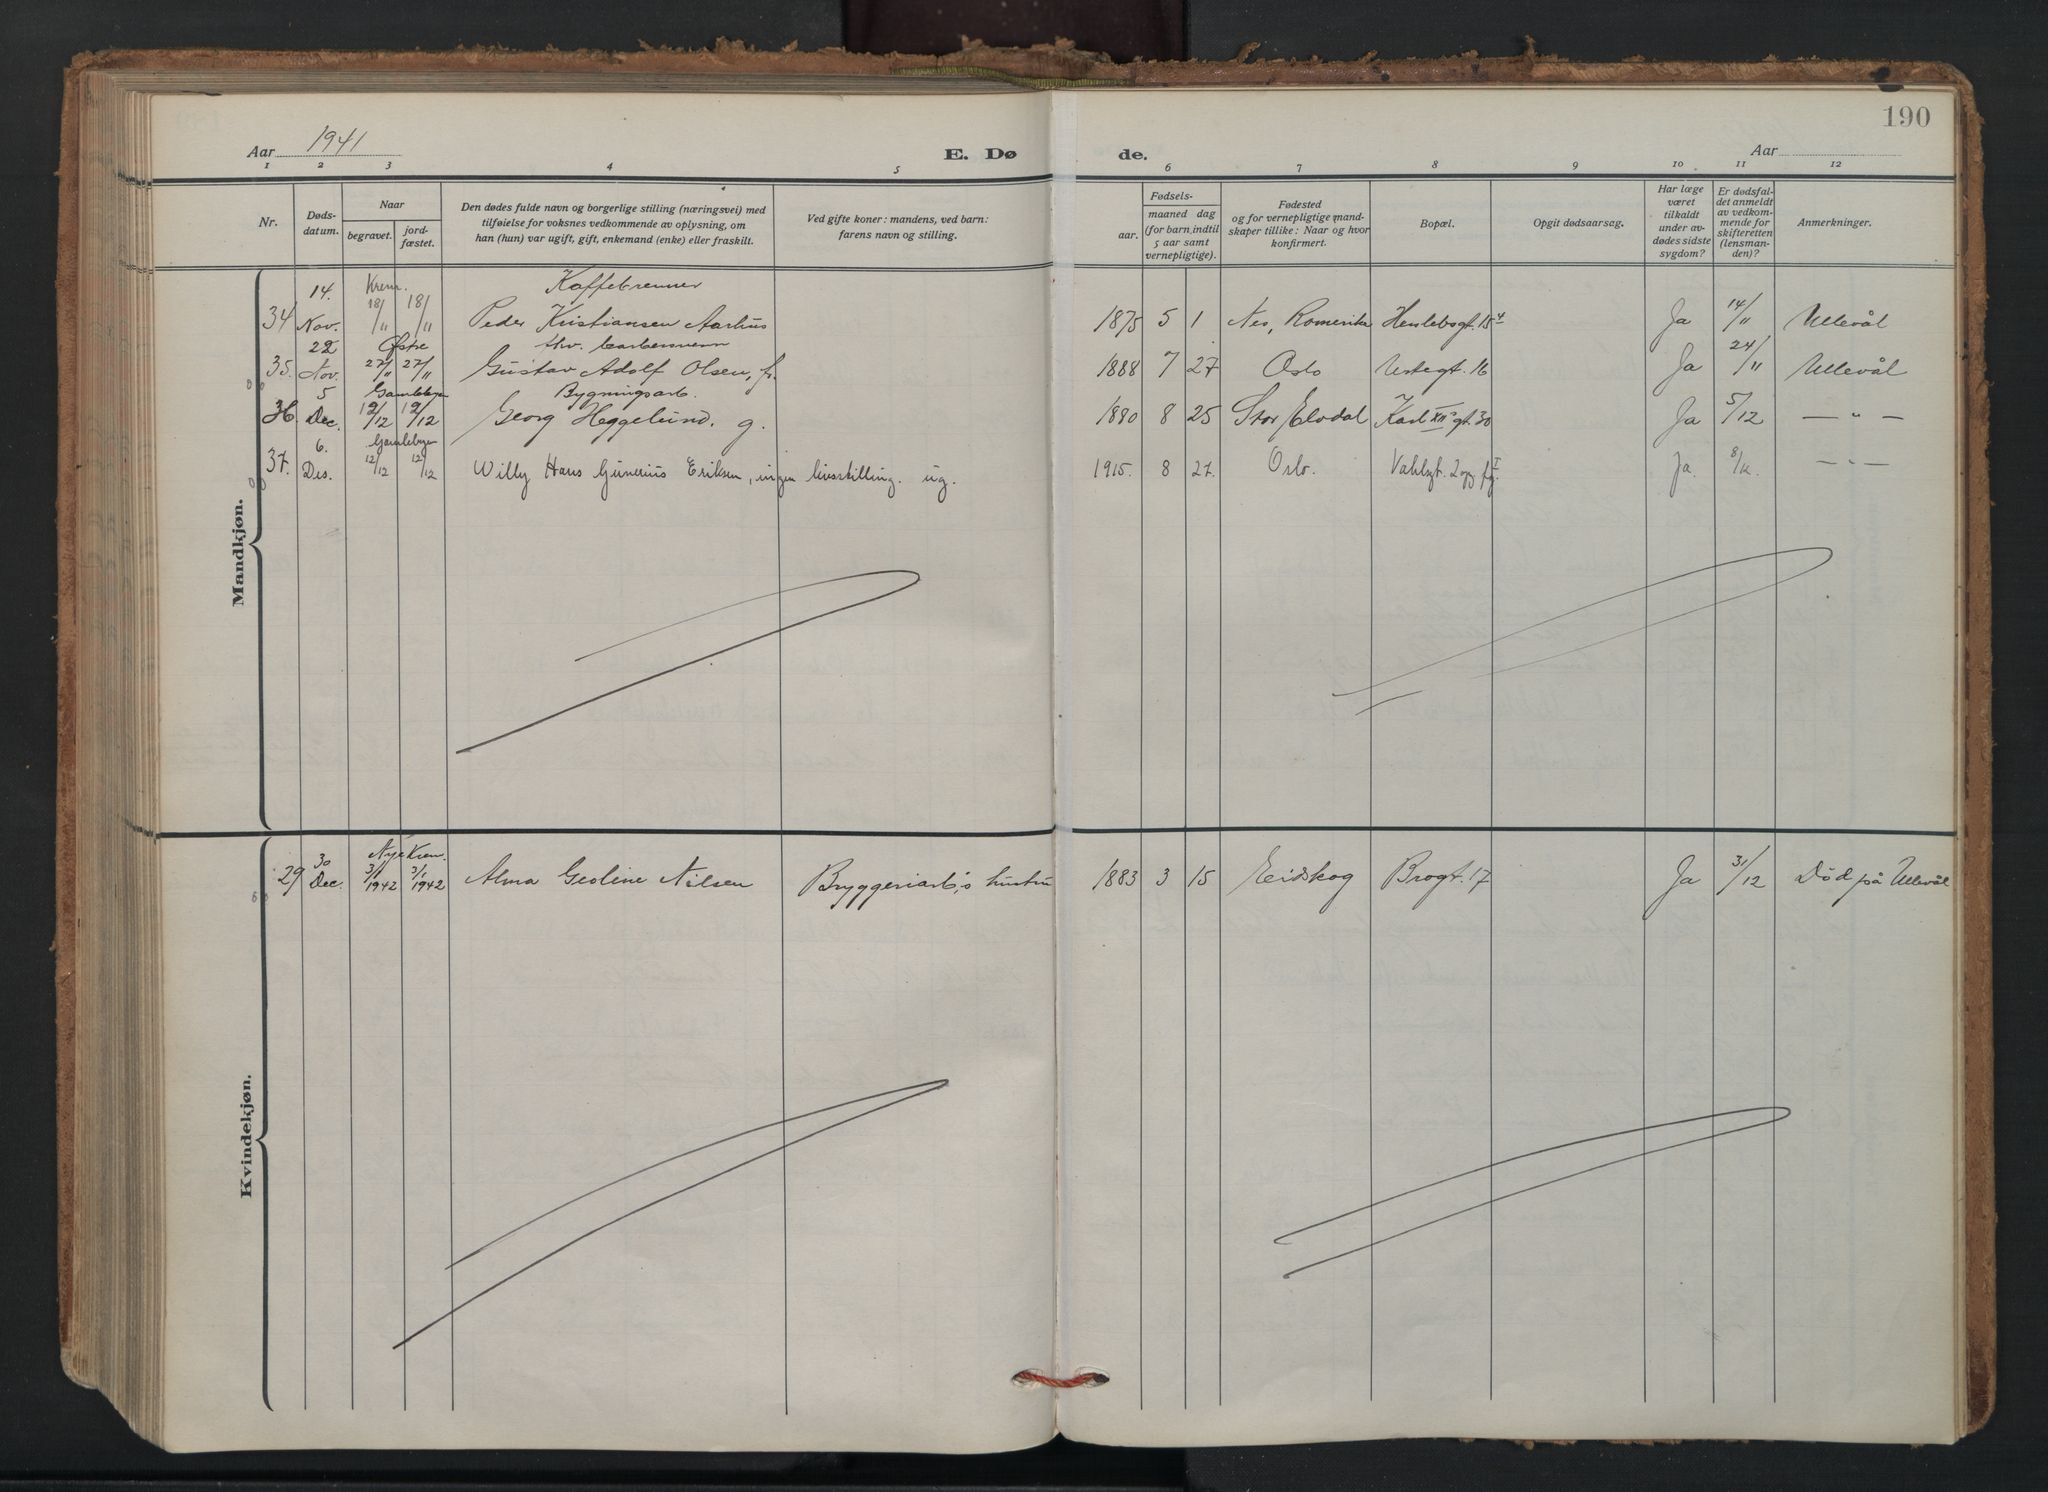 190
Aar 1941
E. Dø
de.
Aar
1 2 3 4 5 6 7 8 9 10 11 12
Nr.
Døds-
datum.
Naar
begravet.
jord-
fæstet.
Den dødes fulde navn og borgerlige stilling (næringsvei) med
tilføielse for voksnes vedkommende av oplysning, om
han (hun) var ugift, gift, enkemand (enke) eller fraskilt.
Ved gifte koner: mandens, ved barn:
farens navn og stilling.
Fødsels-
aar.
maaned dag
(for barn indtil
5 aar samt
vernepligtige).
Fødested
og for vernepligtige mand-
skaper tillike: Naar og hvor
konfirmert.
Bopæl.
Opgit dødsaarsag.
Har læge
været
tilkaldt
under av-
dødes sidste
sygdom?
Er dødsfal-
det anmeldt
av vedkom-
mende for
skifteretten
(lensman-
den)?
Anmerkninger.
Mandkjøn.
14. Krem. Kaffebrenner
34 Nov. 18/11 18/11 Peder Kristiansen Aarhus 1875 5 1 Nes, Romerike Herslebsgt. 15 4 Ja 14/11 Ullevål
22 Østre fhv. barbersvenn
35. Nov. 27/11 27/11 Gustav Adolf Olsen, fr. 1888 7 27 Oslo Urtegt. 16 Ja 24/11 Ullevål
5 Gamlebyen Bygningsarb.
36. Dec. 12/12 12/12 Georg Heggelund. g. 1880 8 25 Stor Elvdal Karl XII's gt. 30 Ja 5/12 — " —
6. Gamlebyen
37. Des. 12/12 12/12 Willy Hans Gunerius Eriksen, ingen livsstilling. ug. 1915. 8 27. Oslo. Vahlsgt. 2 Ja. 8/12. — " —
Kvindekjøn.
30 Nye Krem.
29 Dec. 3/1 1942 3/1 1942 Alma Geoline Nilsen Bryggeriarb.s hustru 1883 3 15 Eidskog Brogt. 17 Ja 31/12 Død på Ullevål